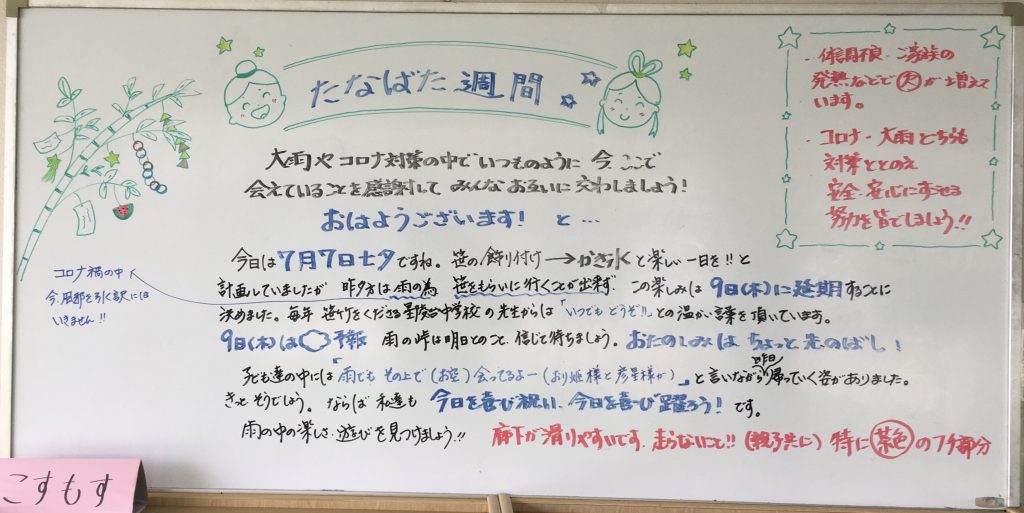 たなばた週間
大雨や コロナ対策の中で いつものように 今、ここで
会えていることを感謝して みんな おたがいに 交わしましょう！
おはようございます！ と…
今日は 7月7日七夕ですね。笹の飾り付け→かき氷と楽しい一日を!!と
計画していましたが 昨夕方は 雨の為 笹をもらいに行くことが出来ず この楽しみは 9日(木)に延期することに
決めました。毎年 笹竹をくださる 中学校の先生からは「いつでもどうぞ!!」との温かい言葉を頂いています。
9日(木)は 予報 雨の峠は明日とのこと、信じて待ちましょう。おたのしみは ちょっと先のばし！
子ども達の中には「雨でも その上で(お空)会ってるよー(おり姫様と彦星様が)」と言いながら 昨日 帰っていく姿がありました。
きっと そうでしょう。ならば 私達も 今日を喜び祝い、今日を喜び躍ろう！です。
雨の中の楽しさ・遊びを見つけましょう!!
廊下が滑りやすいです。走らないこと!!(親子共に) 特に 茶色 の 部分
コロナ禍の中
今、風邪を引く訳には
いきません!!
・体調不良・ご家族の
発熱などで 欠 が増えて
います。
・コロナ・大雨 どちらも
対策ととのえ
安全・安心にすごせる
努力を皆でしましょう!!
こすもす